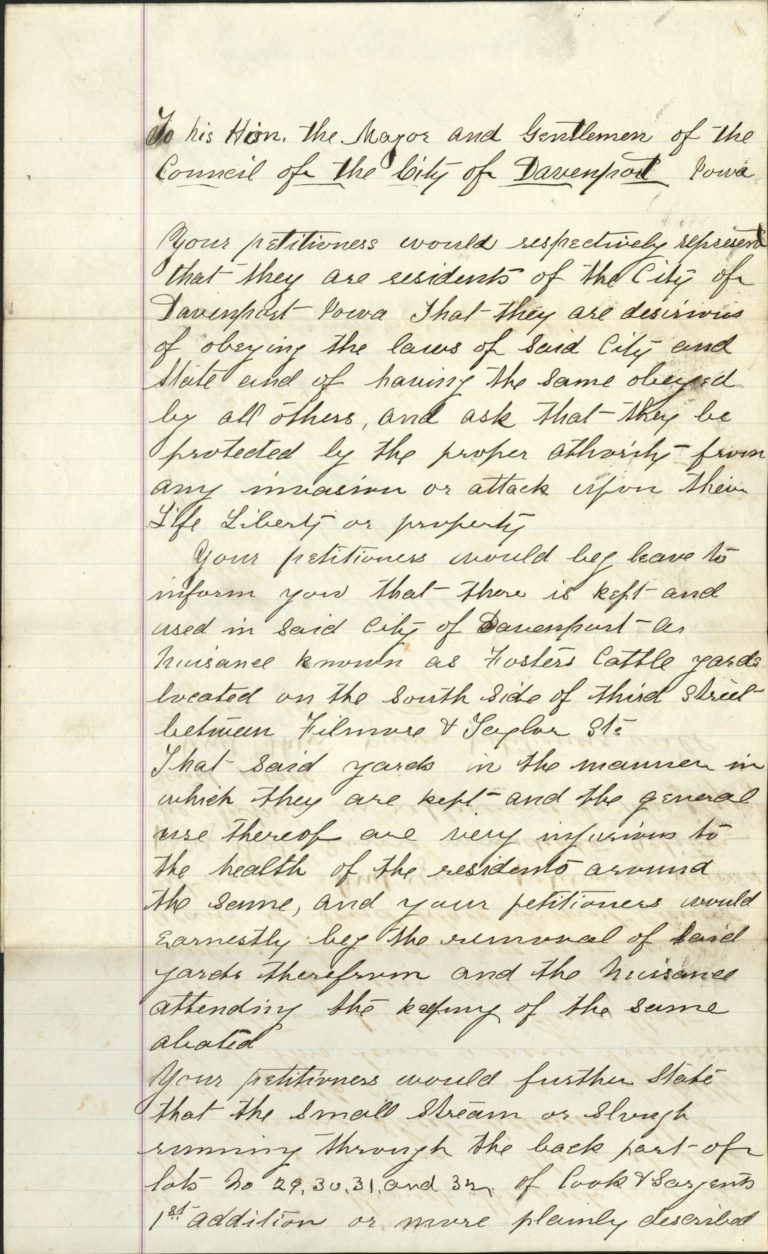 To his Hon. the Mayor and Gentlemen of the
Council of the City of Davenport Iowa
Your petitioners would respectively represent
that they are residents of the City of
Davenport Iowa That they are desirious
of obeying the laws of said City and
State and of having the same obeyed
by all others, and ask that they be
protected by the proper athority from
any invasion or attack upon their
Life Liberty or property
Your petitioners would beg leave to
inform you that there is kept and
used in said City of Davenport a
Nuisance known as Fosters Cattle yards
located on the South Side of third Street
between Filmore & Taylor Sts
That said yards in the manner in
which they are kept and the general
use thereof are very injurious to
the health of the residents around
the same, and your petitioners would
Earnestly beg the removal of said
yards therefrom and the Nuisance
attending the keeping of the same
abated
Your petitioners would further State
that the Small Stream or Slough
running through the back part of
lots No 29, 30, 31, and 32, of Cook & Sargents
1st addition or more plainly described